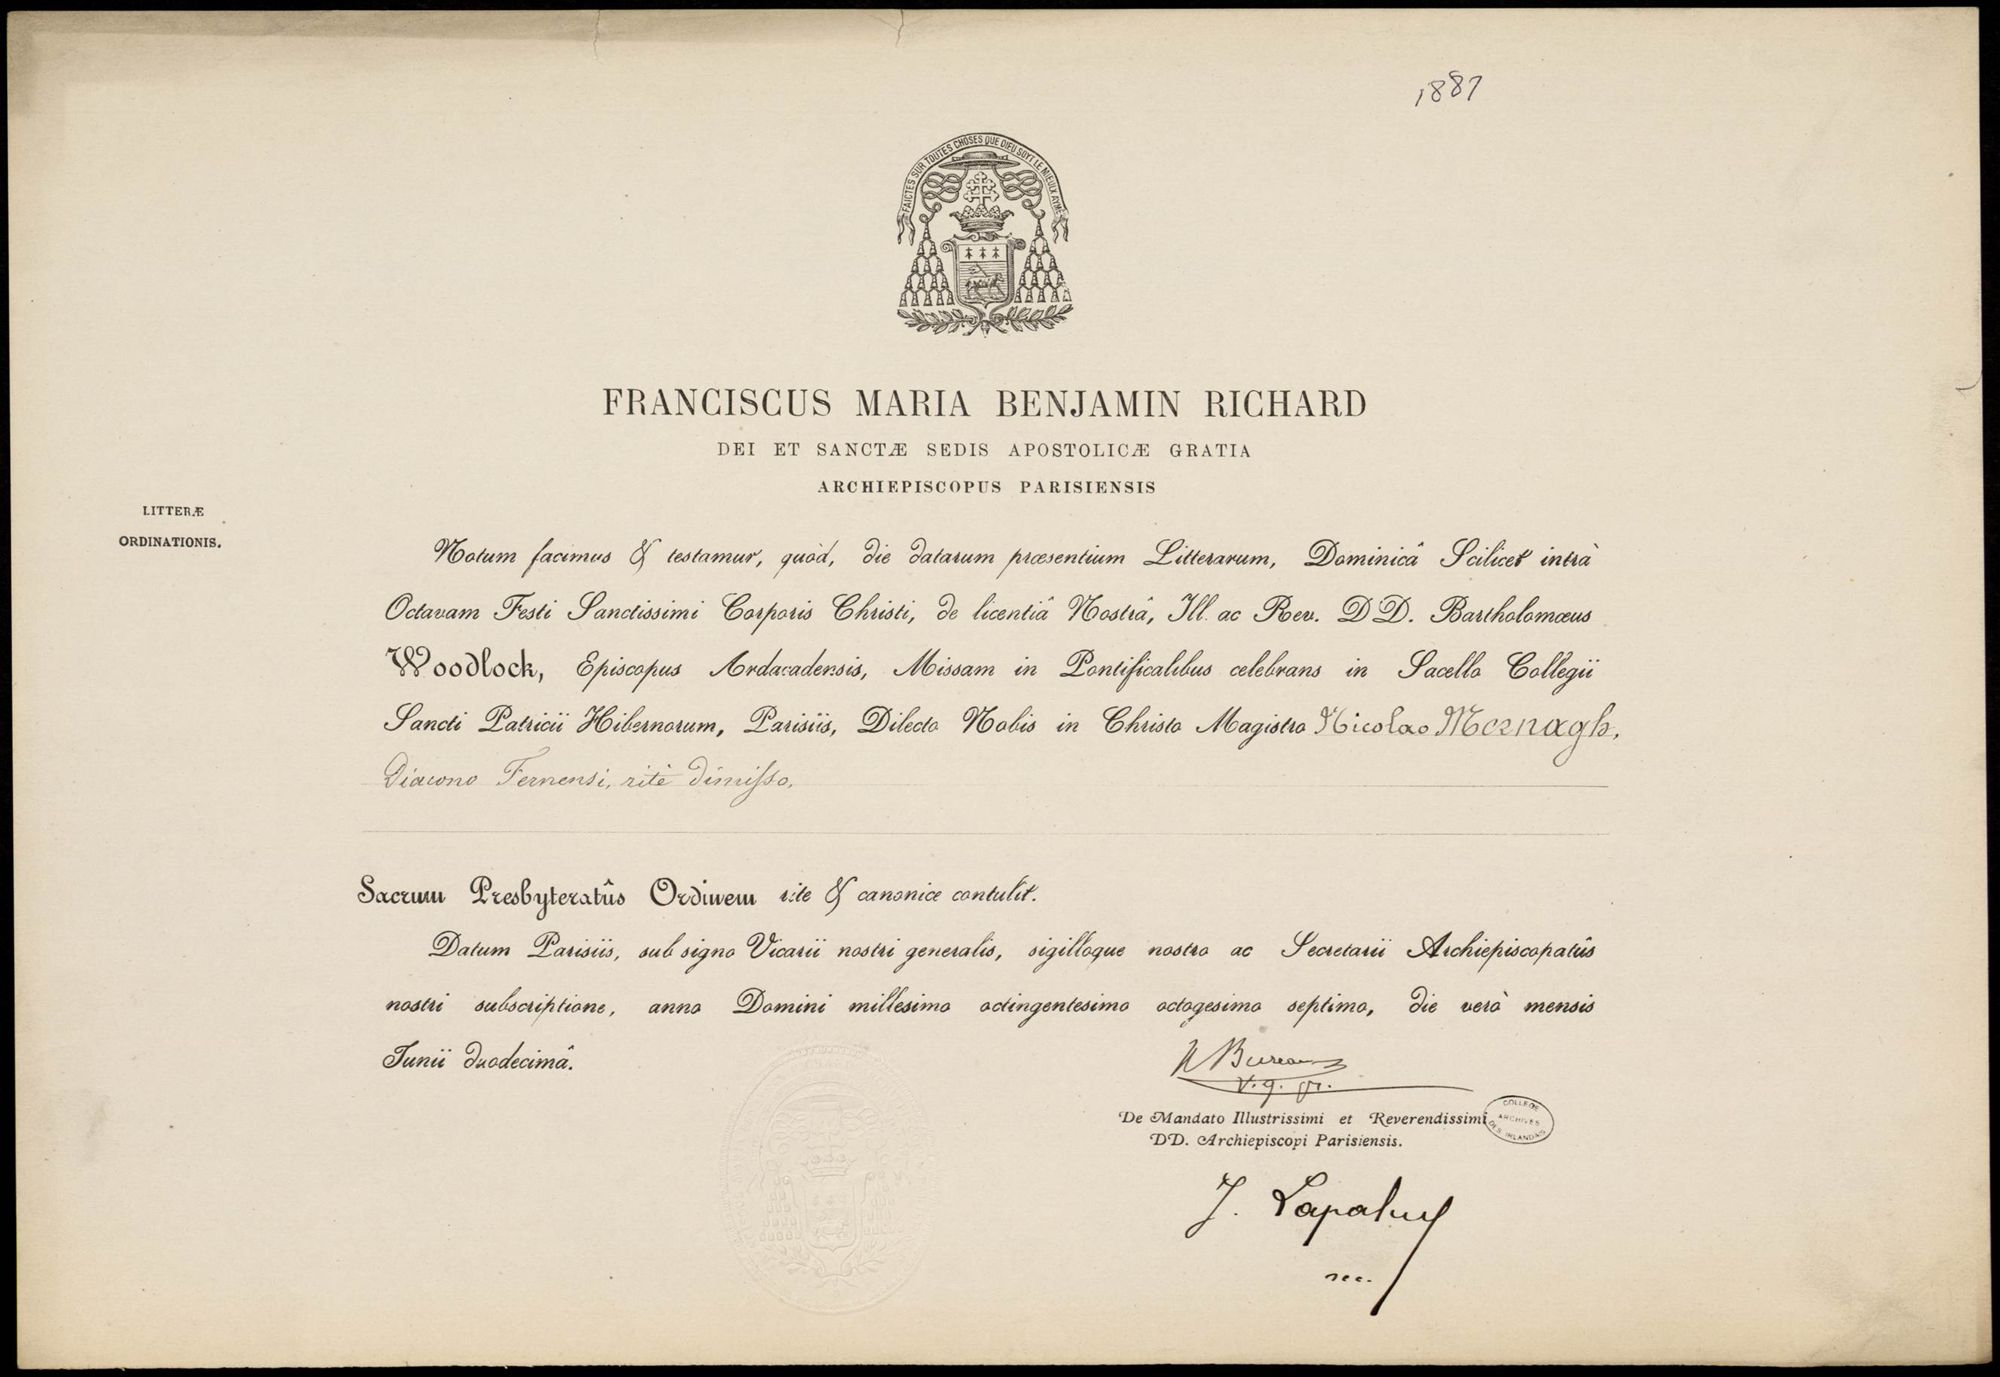 1887
FAICTES SUR TOUTES CHOSES QUE DIEU SOYT LE MIEULX AYMÉ
FRANCISCUS MARIA BENJAMIN RICHARD
DEI ET SANCTÆ SEDIS APOSTOLICÆ GRATIA
ARCHIEPISCOPUS PARISIENSIS
LITTERÆ
ORDINATIONIS.
Notum facimus & testamur, quòd, die datarum præsentium Litterarum, Dominicâ Scilicet intrà
Octavam Festi Sanctissimi Corporis Christi, de licentiâ Nostrâ, Ill. ac Rev. DD. Bartholomæus
Woodlock, Episcopus Ardacadensis, Missam in Pontificalibus celebrans in Sacello Collegii
Sancti Patricii Hibernorum, Parisiis, Dilecto Nobis in Christo Magistro Nicolao Mernagh,
Diacono Fernensi, ritè dimisso,
Sacrum Presbyteratûs Ordinem rite & canonice contulit.
Datum Parisiis, sub signo Vicarii nostri generalis, sigilloque nostro ac Secretarii Archiepiscopatûs
nostri subscriptione, anno Domini millesimo octingentesimo octogesimo septimo, die verò mensis
Junii duodecimâ.
Bureau
v. g.
De Mandato Illustrissimi et Reverendissimi
DD. Archiepiscopi Parisiensis.
COLLEGE
ARCHIVES
DES IRLANDAIS
J.
sec.